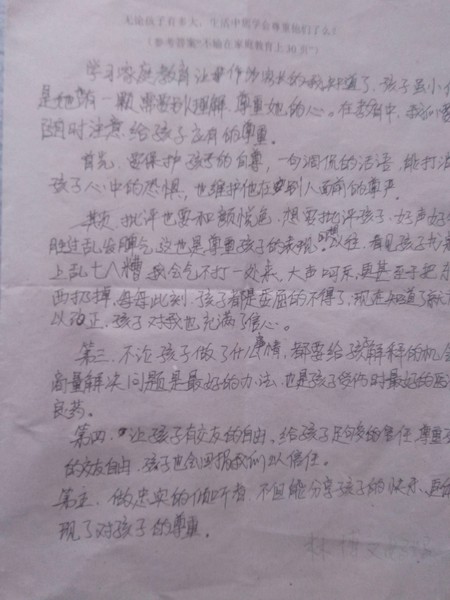 无论孩子有多大，生活中您学会尊重他们了么？
（参考答案“不输在家庭教育上10页”）
学习家庭教育让我作为家长的我知道了，孩子虽小但
是她有一颗需要别人理解、尊重她的心。在教育中，我们要
随时注意给孩子应有的尊重。
首先，要保护孩子的自尊，一句调侃的话语，能打消
孩子心中的恐惧，也维护他在别人面前的尊严。
其次，批评也要和颜悦色，想要批评孩子，好声好
胜过乱发脾气，这也是尊重孩子的表现。以往，看见孩子
上乱七八糟，我会气不打一处来，大声呵斥，甚至于把东
西扔掉，每每此刻，孩子都是委屈的不得了，现在知道了
以改正，孩子对我也充满了信心。
第三，不论孩子做了什么事情，都要给孩子解释的机会
商量解决问题是最好的办法，也是孩子受伤时最好的
良药。
第四，让孩子有交友的自由，给孩子足够的信任，尊重
的交友自由，孩子也会回报我们以信任。
第五，做忠实的倾听者，不但能分享孩子的快乐，更
现了对孩子的尊重。